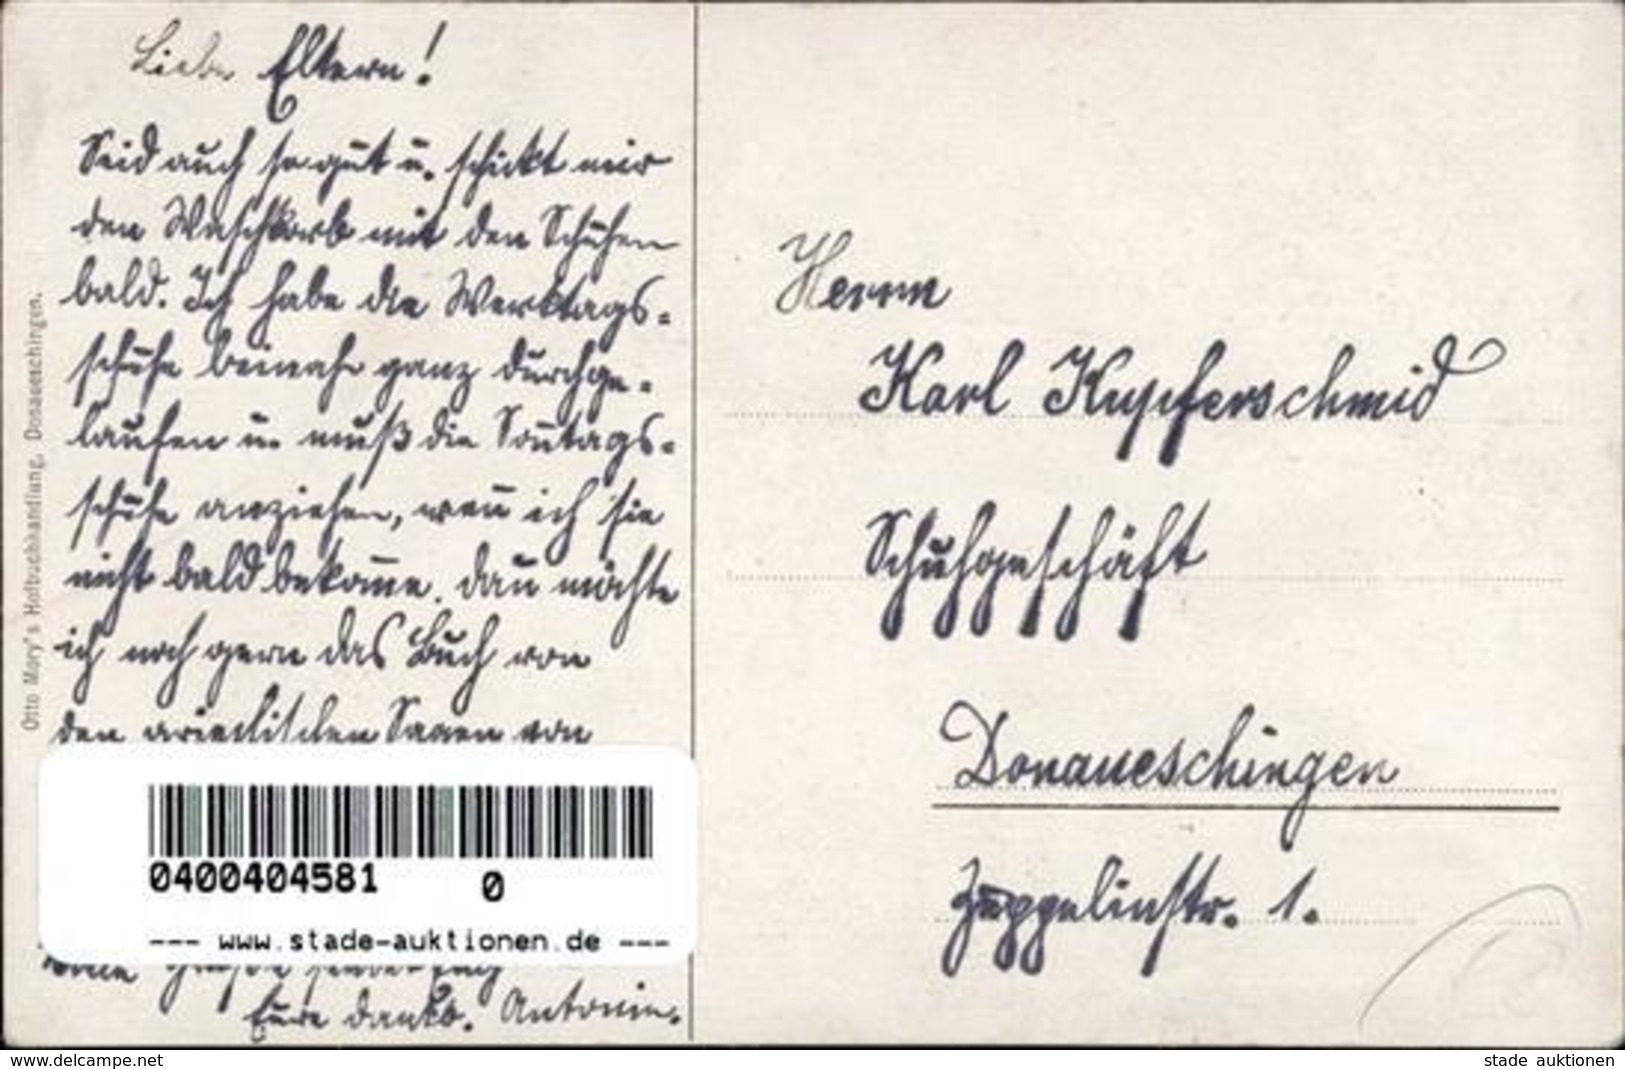 Liebe Eltern!
Seid auch so gut u. schickt mir
den Waschkorb mit den Schuhen
bald. Ich habe die Werktags=
schuhe beinahe ganz durchge=
laufen u. muß die Sonntags=
schuhe anziehen, wen̄ ich sie
nicht bald bekom̄e. Dan̄ möchte
ich noch gern das Buch von
den griechischen Sagen von
Grüße sendet Euch
Eure dankb. Antonie.
Otto Mory's Hofbuchhandlung, Donaueschingen.
0400404581 0
--- www.stade-auktionen.de ---
Herrn
Karl Kupferschmid
Schuhgeschäft
Donaueschingen
Zeppelinstr. 1.
www.delcampe.net
stade auktionen